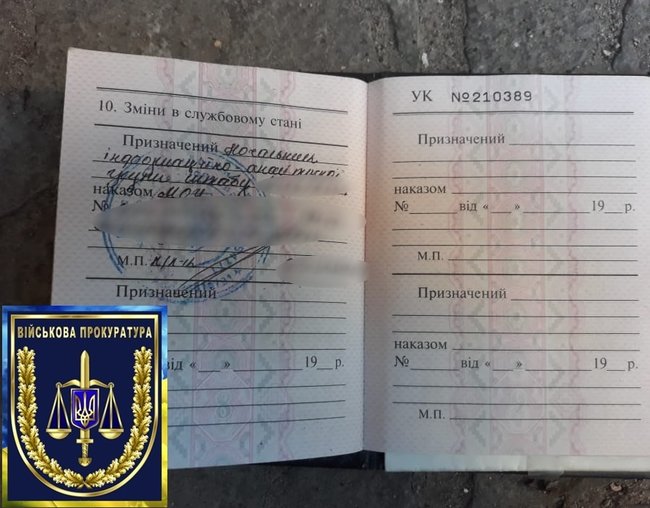 10. Зміни в службовому стані
Призначений Начальник
інформаційно-аналітичної
групи штабу
наказом МОУ
№
М.П.
Призначений
від «___» 19__ р.
УК №210389
Призначений
наказом
№ від «___» 19__ р.
М.П.
Призначений
наказом
№ від «___» 19__ р.
М.П.
ВІЙСЬКОВА ПРОКУРАТУРА